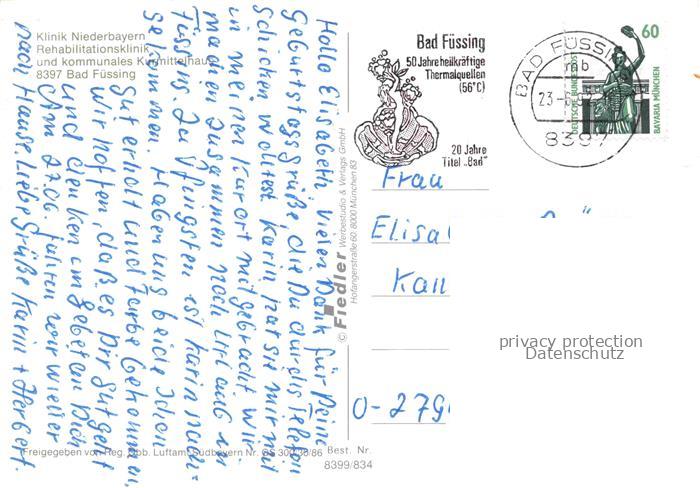 Klinik Niederbayern
Rehabilitationsklinik
und kommunales Kurmittelhaus
8397 Bad Füssing
Bad Füssing
50 Jahre heilkräftige
Thermalquellen
(56°C)
20 Jahre
Titel „Bad"
BAD FÜSSI
mb
23.-6.
8397
60
DEUTSCHE BUNDESPOST
BAVARIA MÜNCHEN
Hallo Elisabeth, vielen Dank für Deine
Geburtstagsgrüße, die Du durchs Telefon
schicken wolltest. Karin hat sie mir mit
in meinen Kurort mitgebracht. Wir
machen zusammen noch Urlaub in
Füssing. Zu Pfingsten ist Karin nach-
gekommen. Haben uns beide schon
gut erholt und Farbe bekommen.
Wir hoffen, daß es Dir gut geht
und denken im gebeten Dich
Am 27.06. fahren wir wieder
nach Hause. Liebe Grüße Karin + Herbert.
© Fiedler Werbestudio & Verlags GmbH
Hofangerstraße 60 · 8000 München 83
Frau
Elisa
Kan
O-279
privacy protection
Datenschutz
Freigegeben von Reg. Obb. Luftamt Südbayern Nr. GS 300/36/86
Best. Nr.
8399/834